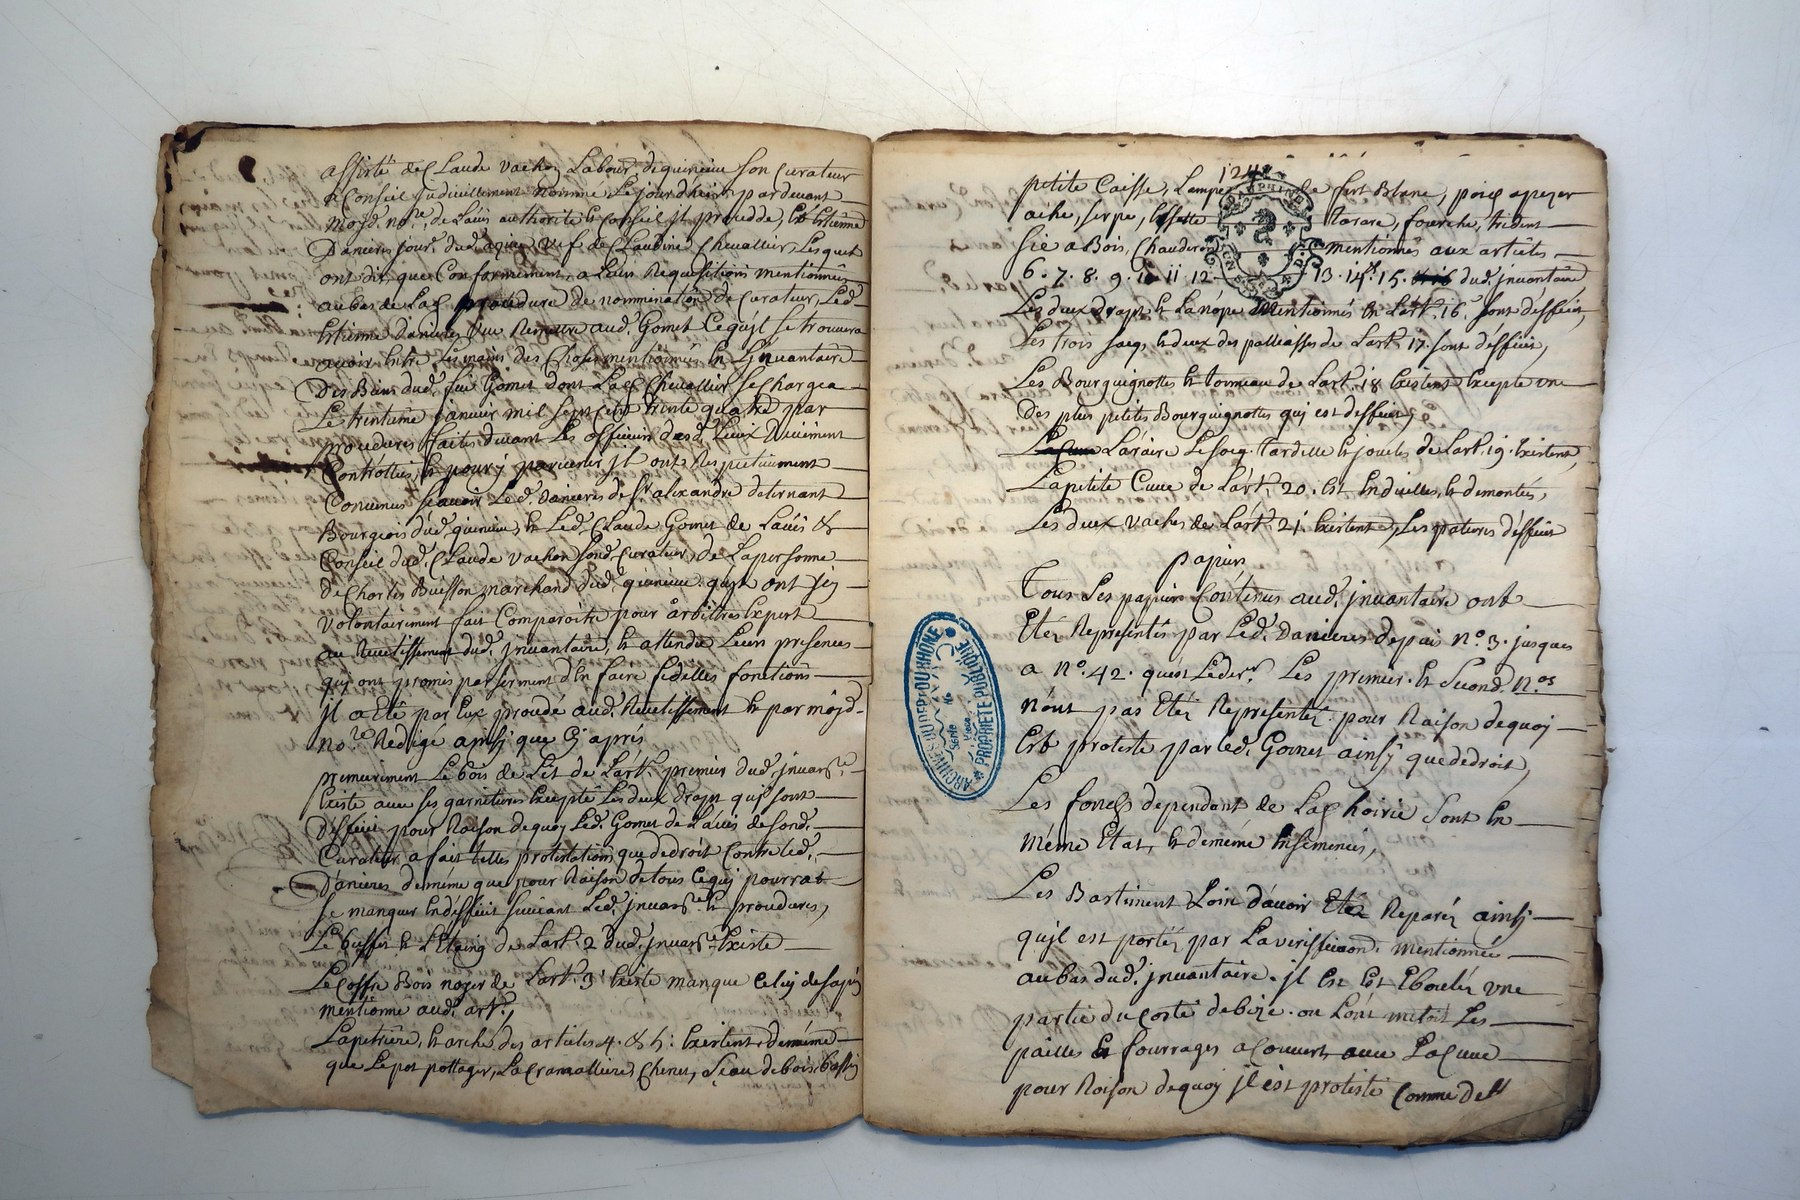 assisté de Claude vachon Labour. de quincieu son Curateur
& Conseil judiciellement nommé Le jourdhuir pardevant
mojd. nore. de Lavis authorité & Conseil jl proceddé, Et Estienne
Danieres jour. dud. veuf de Claudine Chevallier, Lesquels
ont dit que Conformement a Leurs Requisitions mentionnés
au bas de Lad. procedure de nomination de Curateur, Led.
Estienne Danieres Remettre aud. Gomet Ce qu'jl se trouvera
avoir Entre Les mains des Choses mentionnées En L'jnvantaire
Des Biens dud. feu Gomet dont Lad. Chevallier se Chargea
Le trentieme janvier mil sept cent trente quatre par
procedures faites devant Les officiers desd. Lieux
Controllés, & pour y parvenir jl ont Respectivement
Convenus sçavoir Led. Danieres de St. alexandre
Bourgeois dud. quincieu, & Led. Claude Gomet de Lavis &
Conseil dud. Claude vachon sond. Curateur, de La personne
de Charles Buisson marchand dud. quincieu qu'jls ont jcy
volontairement fait Comparoitre pour arbitres Expert
au Revetissement dud. jnvantaire, & attendu Leurs presences
quj ont promis par serment d'En faire fidelles fonctions
jl a Eté par Eux procedé aud. Revetissement & par mojd.
nore. Redigé ainsy que Cy apres
premierement Le bois de Lit de Lart. premier dud. jnvanre.
Existe avec ses garnitures Excepté Les deux draps quj sont
Deffécit pour Raison de quoy Led. Gomet de Lavis de sond.
Curateur a fait telles protestations que de droit Contre led.
Danieres de méme que pour Raison de tous Ce quj pourrat
se manquer En deffécit suivant Led. jnvanre. & procedures,
Le buffet & L'Etaing de Lart. 2 dud. jnvanre. Existe
Le Coffre Bois noyer de Lart. 3. Existe manque Celuy de sapin
mentionné aud. art.,
La petriere, & arche des articles 4. & 5: Existent de méme
que Le pot pottager, La Cramalliere, Chenet, Seau de bois, bassin
124
petite Caisse, Lampe de fert Blanc, poix a pezer
ache, serpe, tarare, fourche, trident
sie a Bois, Chaudiron mentionnés aux articles
6. 7. 8. 9. 10 11. 12. 13. 14. 15. dud. jnvantaire
Les deux draps & La nópe mentionnés En Lart. 16. sont deffécit,
Les trois sacqs & deux des palliasses de Lart. 17. sont deffécit,
Les Bourguignottes & tonneau de Lart. 18 Existent Excepté une
des plus petites Bourguignottes quj est deffécit;
L'araire Le socq tardelle & joucles de Lart. 19. Existent,
La petite Cuve de Lart. 20. est En douelles, & demontée,
Les deux vaches de Lart. 21. Existent, Les patures déffécit
papiers
Tous Les papiers Contenus aud. jnvantaire ont
Etéz Representés par Led. Danieres depuis no. 3. jusques
a no. 42. quest Leder. Les premier & Second. nos
n'ont pas Etéz Representéz pour Raison de quoy
Est protesté par led. Gomet ainsy que de droit,
Les fonds dependant de Lad. hoirie Sont En
méme Etat, & de méme Enseminés,
Les Bastiment Loin d'avoir Etéz Reparéz ainsy
qujl est portéz par La veriffication mentionnée
au bas dud. jnvantaire. jl Est Eboulez une
partie du Costé de bize. ou Lon mettoit Les
pailles & fourrages a Couvert avec La Cuve
pour Raison de quoy jl est protesté Comme de
ARCHIVES DU DEPt DU RHÔNE
PROPRIÉTÉ PUBLIQUE